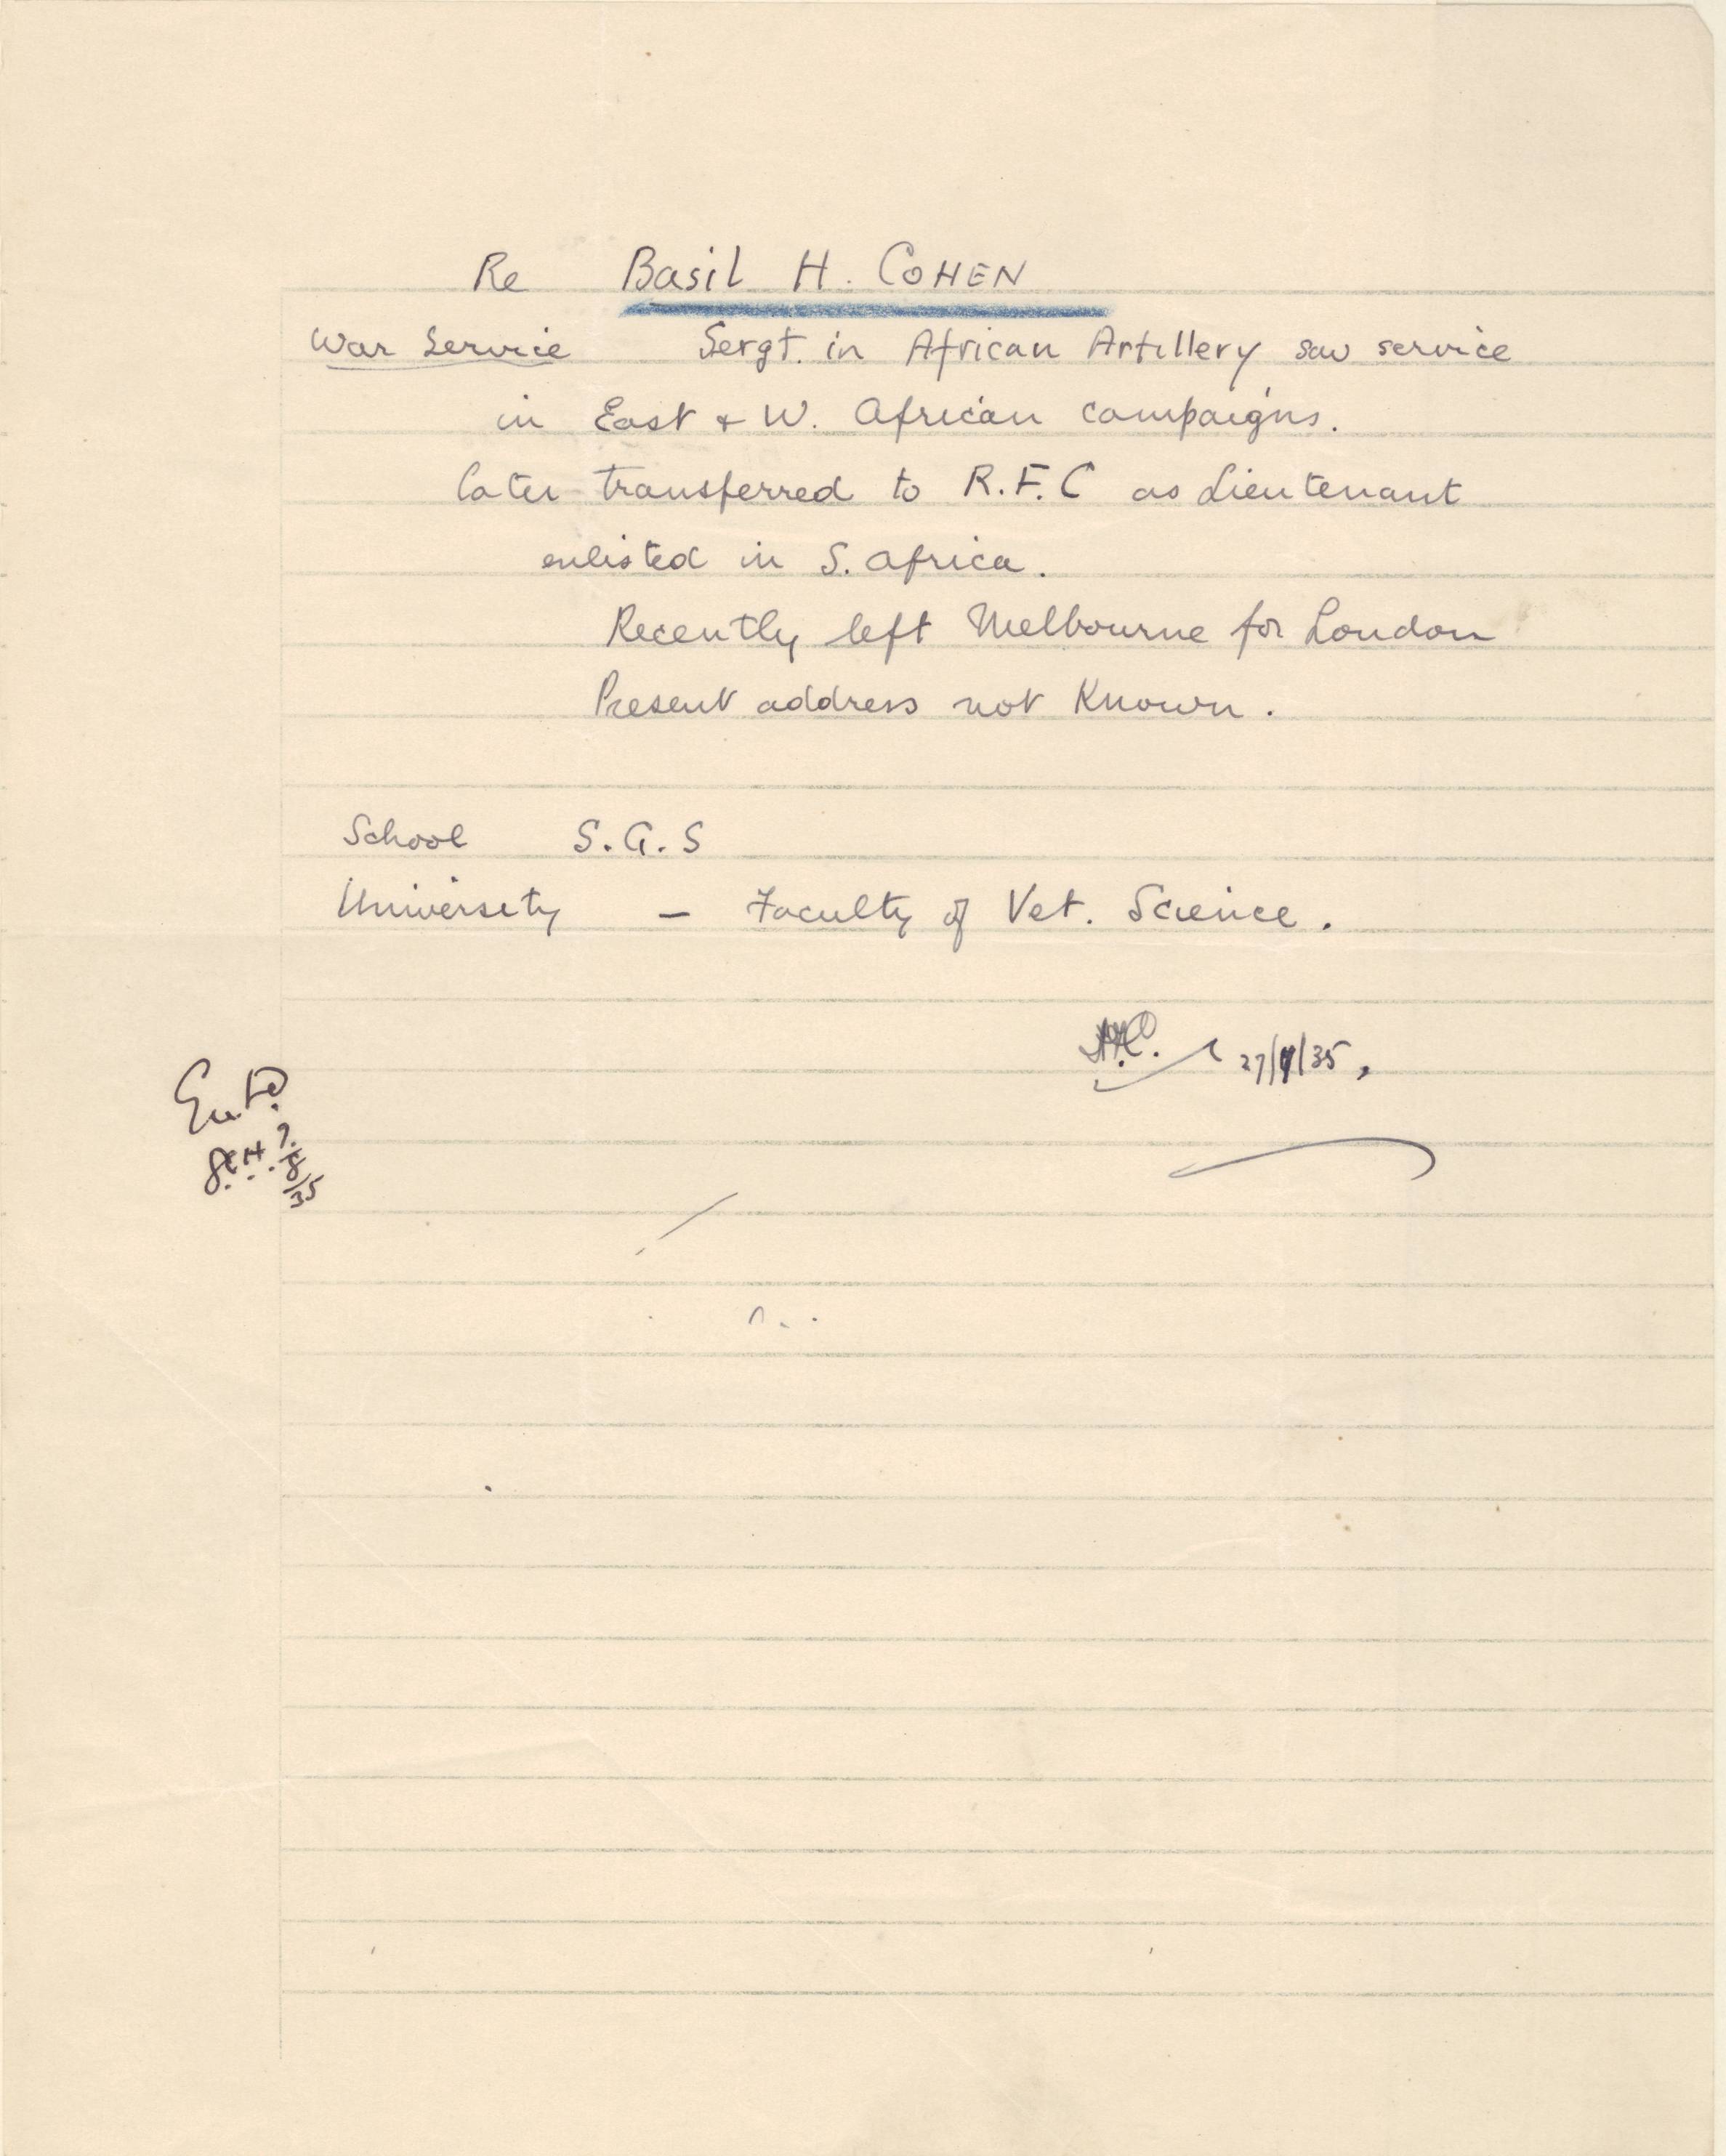 Re Basil H. COHEN
War Service Sergt. in African Artillery saw service
in East & W. African campaigns.
later transferred to R.F.C as Lieutenant
enlisted in S. Africa.
Recently left Melbourne for London
Present address not Known.
School S.G.S
University - Faculty of Vet. Science.
27/ /35,
Entd.